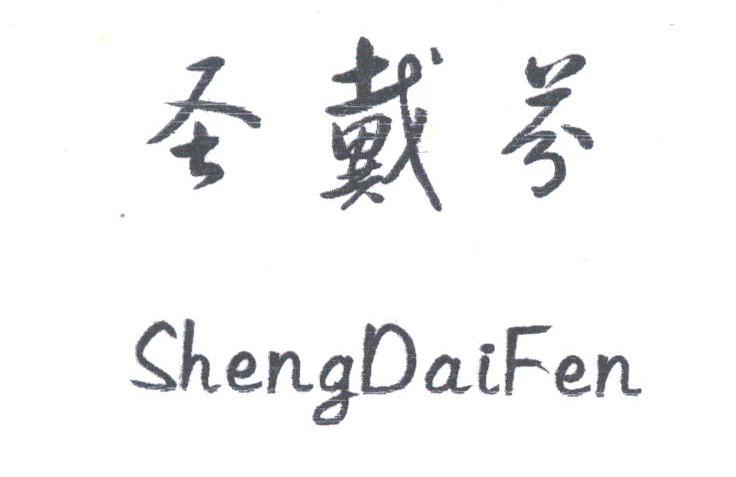 圣戴芬
ShengDaiFen